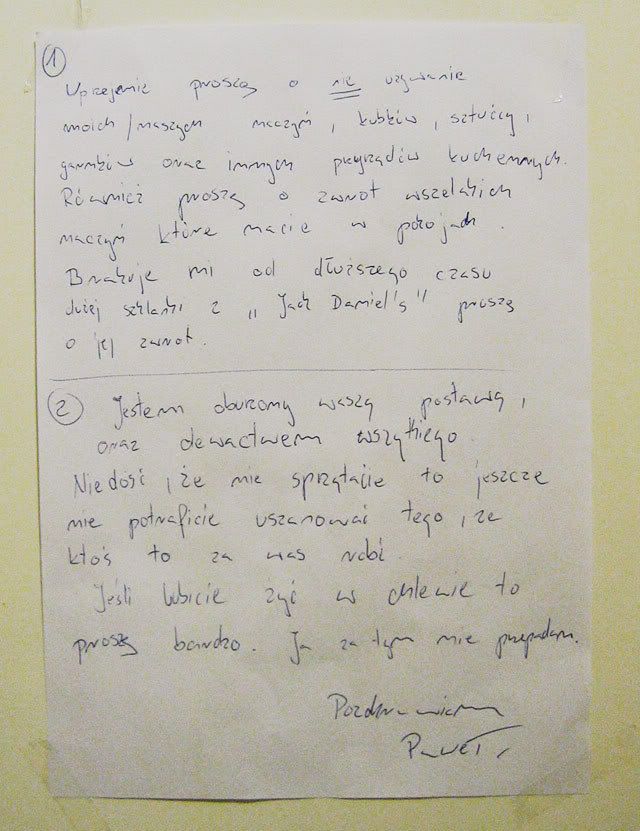 1
Uprzejmie proszę o nie używanie
moich/naszych naczyń, kubków, sztućcy,
garnków oraz innych przyrządów kuchennych.
Również proszę o zwrot wszelakich
naczyń które macie w pokojach.
Brakuje mi od dłuższego czasu
dużej szklanki z „Jack Daniel's" proszę
o jej zwrot.
2 Jestem oburzony waszą postawą,
oraz dewactwem wszytkiego.
Niedość, że nie sprzątacie to jeszcze
nie potraficie uszanować tego, że
ktoś to za was robi.
Jeśli lubicie żyć w chlewie to
proszę bardzo. Ja za tym nie przepadam.
Pozdrawiam
Paweł